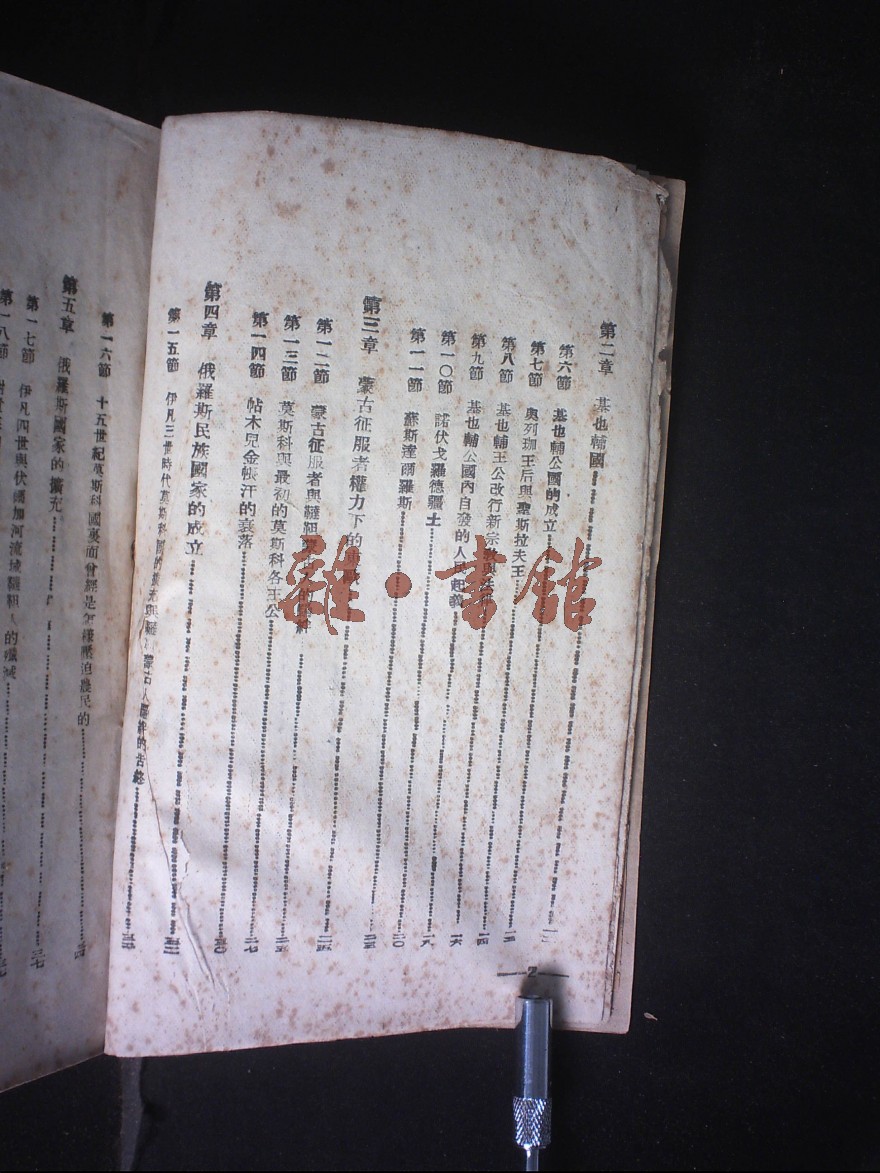 第二章 基也輔國
第六節 基也輔公國的成立
第七節 奧列珈王后與聖斯拉夫王
第八節 基也輔王公改行新宗教與
第九節 基也輔公國內自發的人民起義
第一〇節 諾伏戈羅德疆土 一六
第一一節 蘇斯達爾羅斯 一八
第三章 蒙古征服者權力下的
第一二節 蒙古征服者與韃靼
第一三節 莫斯科與最初的莫斯科各王公
第一四節 帖木兒金帳汗的衰落 二七
第四章 俄羅斯民族國家的成立
第一五節 伊凡三世時代莫斯科國的擴充與韃
第一六節 十五世紀莫斯科國裏面曾經是怎樣壓迫農民的
第五章 俄羅斯國家的擴充
第一七節 伊凡四世與伏爾加河流域韃靼人的殲滅
第一八節
2
雜·書館